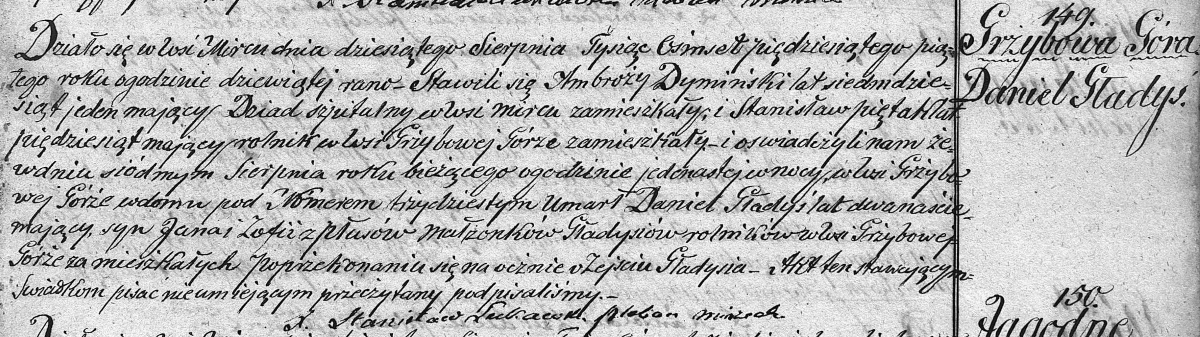 149.
Grzybowa Góra
Daniel Gładyś.
Działo się w wsi Mircu dnia dziesiątego Sierpnia Tysiąc Ośmset piędziesiątego pią-
tego roku ogodzinie dziewiątej rano – Stawili się Ambroży Dymiński lat siedmdzie-
siąt jeden mający Dziad szpitalny w wsi Mircu zamieszkały, i Stanisław Piętak lat
pięDziesiąt mający rolnik w wsi Grzybowej Górze zamieszkały – i oswiadczyli nam że
w dniu siódmym Sierpnia roku bieżącego ogodzinie jedenastej w nocy, w wsi Grzybo-
wej Górze w domu pod Nomerem trzydziestym Umarł Daniel Gładyś lat dwanaście
mający, syn Jana i Zofii z Plusów Małżonków Gładysiów rolników w wsi Grzybowej
Górze zamieszkałych Poprzekonaniu się na ocznie oZejściu Gładysia – Akt ten stawającym
Swiadkom pisać nieumiejącym przeczytany podpisaliśmy. –
X. Stanisław pleban mirzecki
150.
Jagodne